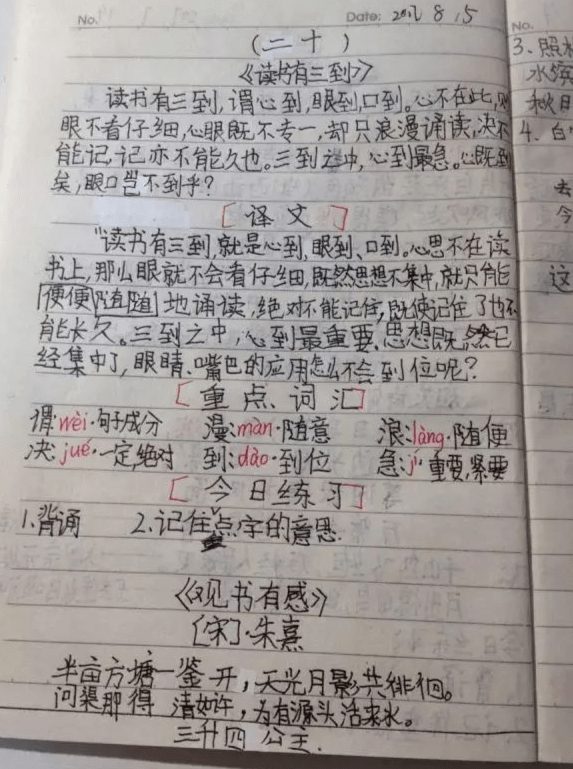 No.
Date: 2017 8.5
(二十)
《读书有三到》
读书有三到,谓心到,眼到,口到。心不在此,则
眼不看仔细,心眼既不专一,却只浪漫诵读,决不
能记,记亦不能久也。三到之中,心到最急。心既到
矣,眼口岂不到乎?
[译文]
"读书有三到,就是心到,眼到、口到。心思不在读
书上,那么眼就不会看仔细,既然思想不集中,就只能
便便随随地诵读,绝对不能记住,既使记住了也不
能长久。三到之中,心到最重要.思想既然已
经集中了,眼睛、嘴巴的应用怎么不会到位呢?
[重点词汇]
谓:wèi·句子成分 漫:màn·随意 浪:làng·随便
决:jué·一定,绝对 到:dào·到位 急:jí·重要,紧要
[今日练习]
1.背诵 2.记住点字的意思.
《观书有感》
[宋]·朱熹
半亩方塘一鉴开,天光月影共徘徊。
问渠那得清如许,为有源头活来水。
三升四 公主.
No.
3.照
水
秋日
4.
去
今
这